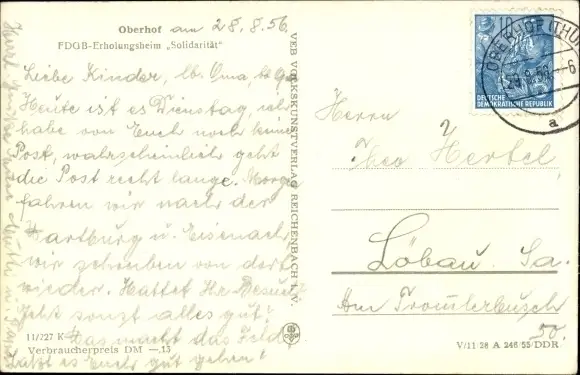 Oberhof am 28.8.56.
FDGB-Erholungsheim „Solidarität"
Liebe Kinder, lb. Oma,
Heute ist es Dienstag, ich
habe von Euch noch keine
Post, wahrscheinlich geht
die Post recht lange. Morg.
fahren wir nach der
Wartburg u. Eisenach
wir schreiben von dort
wieder. Hattet Ihr Besuch?
Geht sonst alles gut?
Was macht das Feld
Laßt es Euch gut gehen!
11/727 K
Verbraucherpreis DM —,15
VEB VOLKSKUNSTVERLAG REICHENBACH I. V.
10
DEUTSCHE
DEMOKRATISCHE REPUBLIK
OBERHOF (THÜR
a
Herrn
Hertel,
Löbau. Sa.
Am
50.
V/11/28 A 246/55/DDR